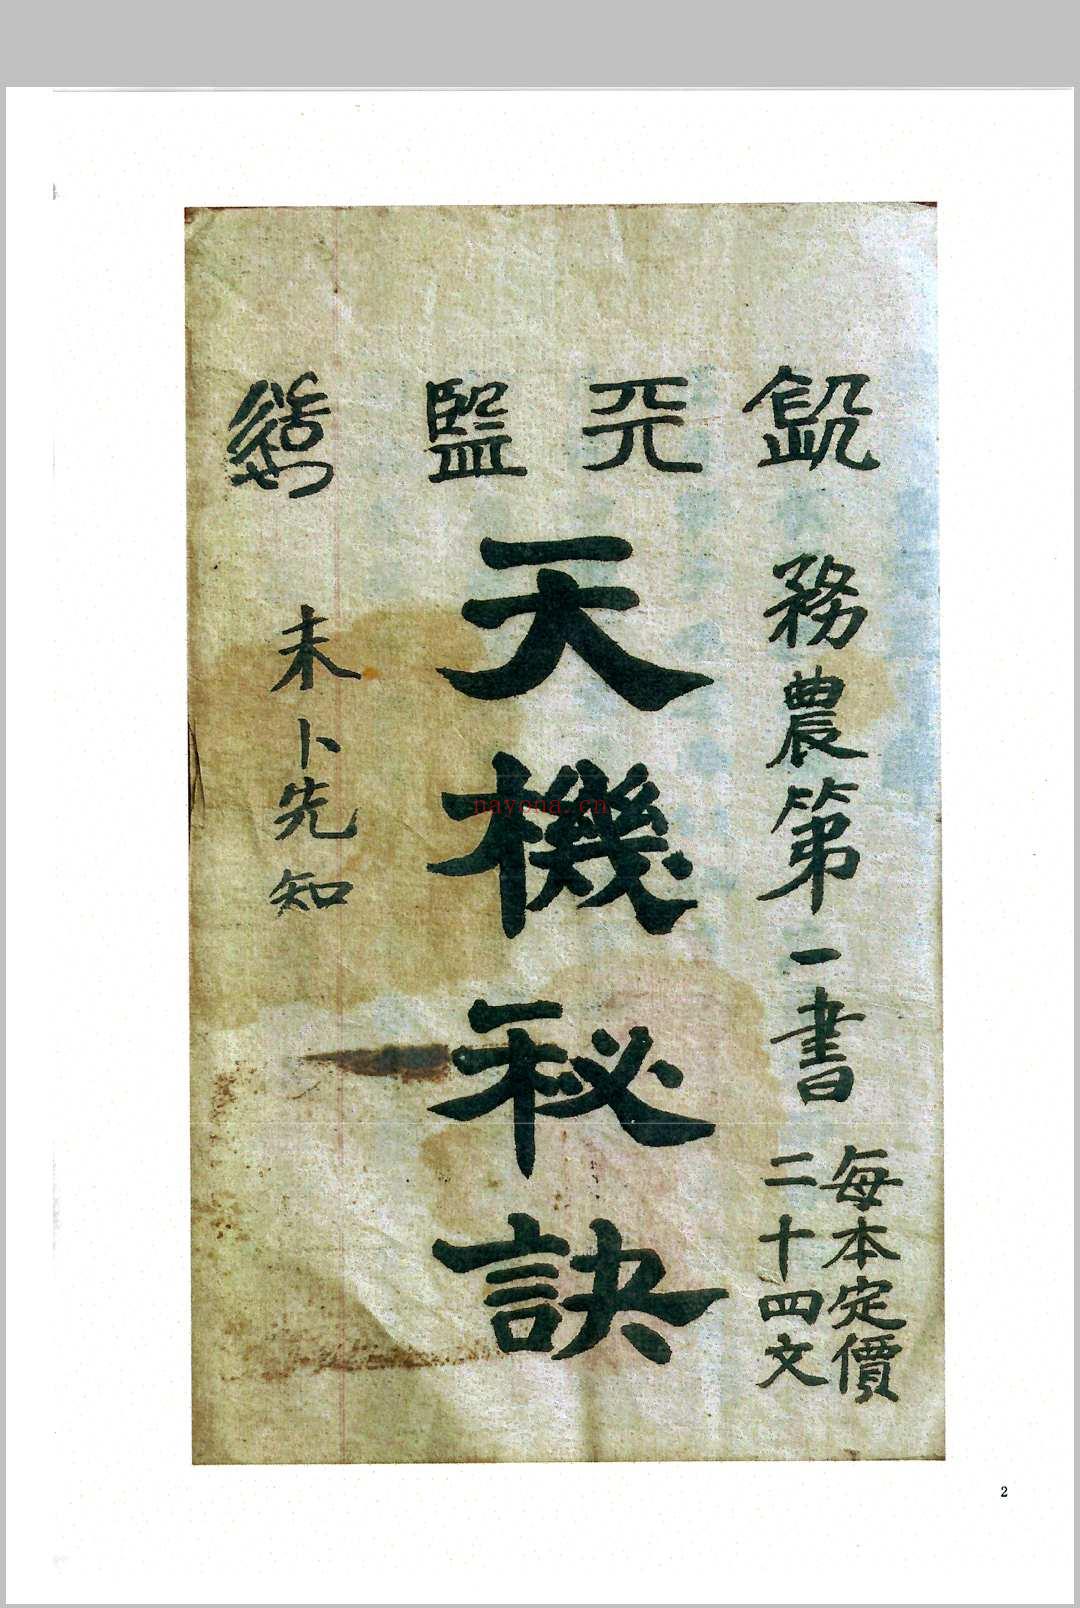 務農第一書
每本定價
二十四文
天機秘訣
未卜先知
nayona.cn
2